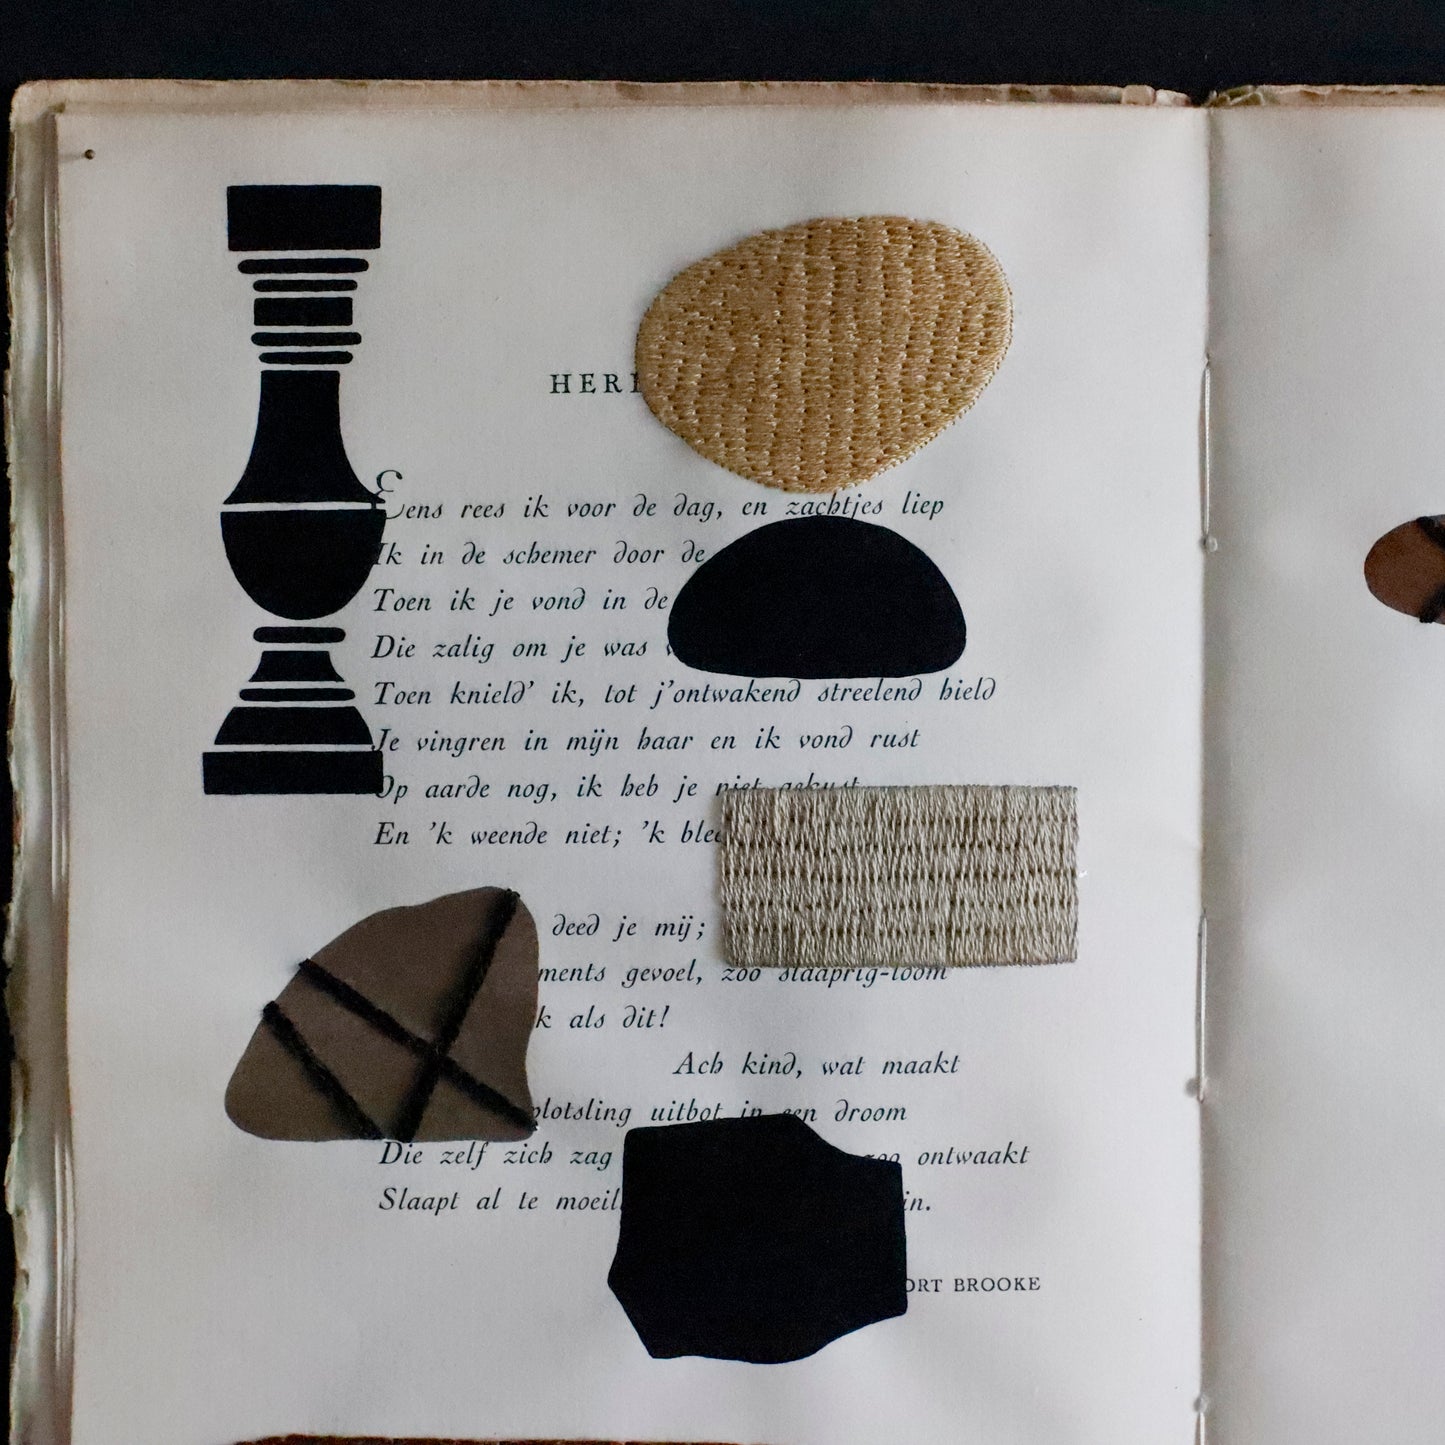 Eens rees ik voor de dag, en zachtjes liep
Ik in de schemer door de
Toen ik je vond in de
Die zalig om je was
Toen knield' ik, tot j'ontwakend streelend hield
Je vingren in mijn haar en ik vond rust
Op aarde nog, ik heb je niet gekust
En 'k weende niet; 'k
deed je mij;
gevoel, zoo slaaprig-loom
als dit!
Ach kind, wat maakt
plotsling uitbot in een droom
Die zelf zich zag zoo ontwaakt
Slaapt al te
BROOKE